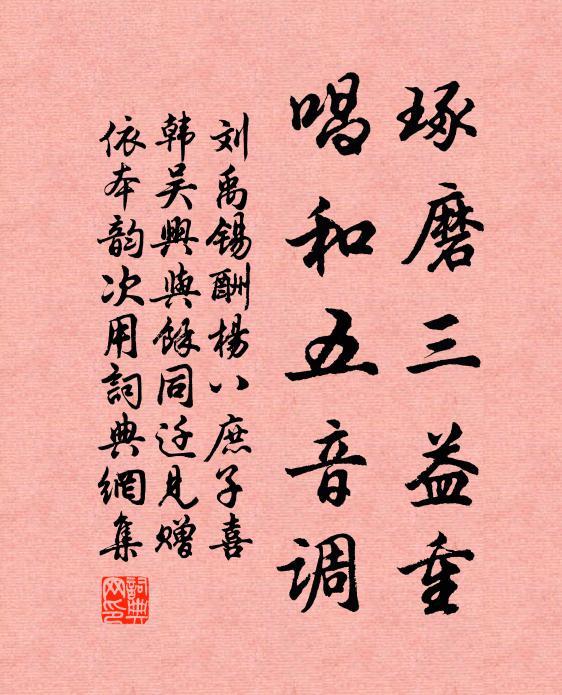 琢磨三益重
唱和五音调
刘禹锡酬楊八庶子喜
韩吴興與餘同迁見赠
依本韵次用詞典網集